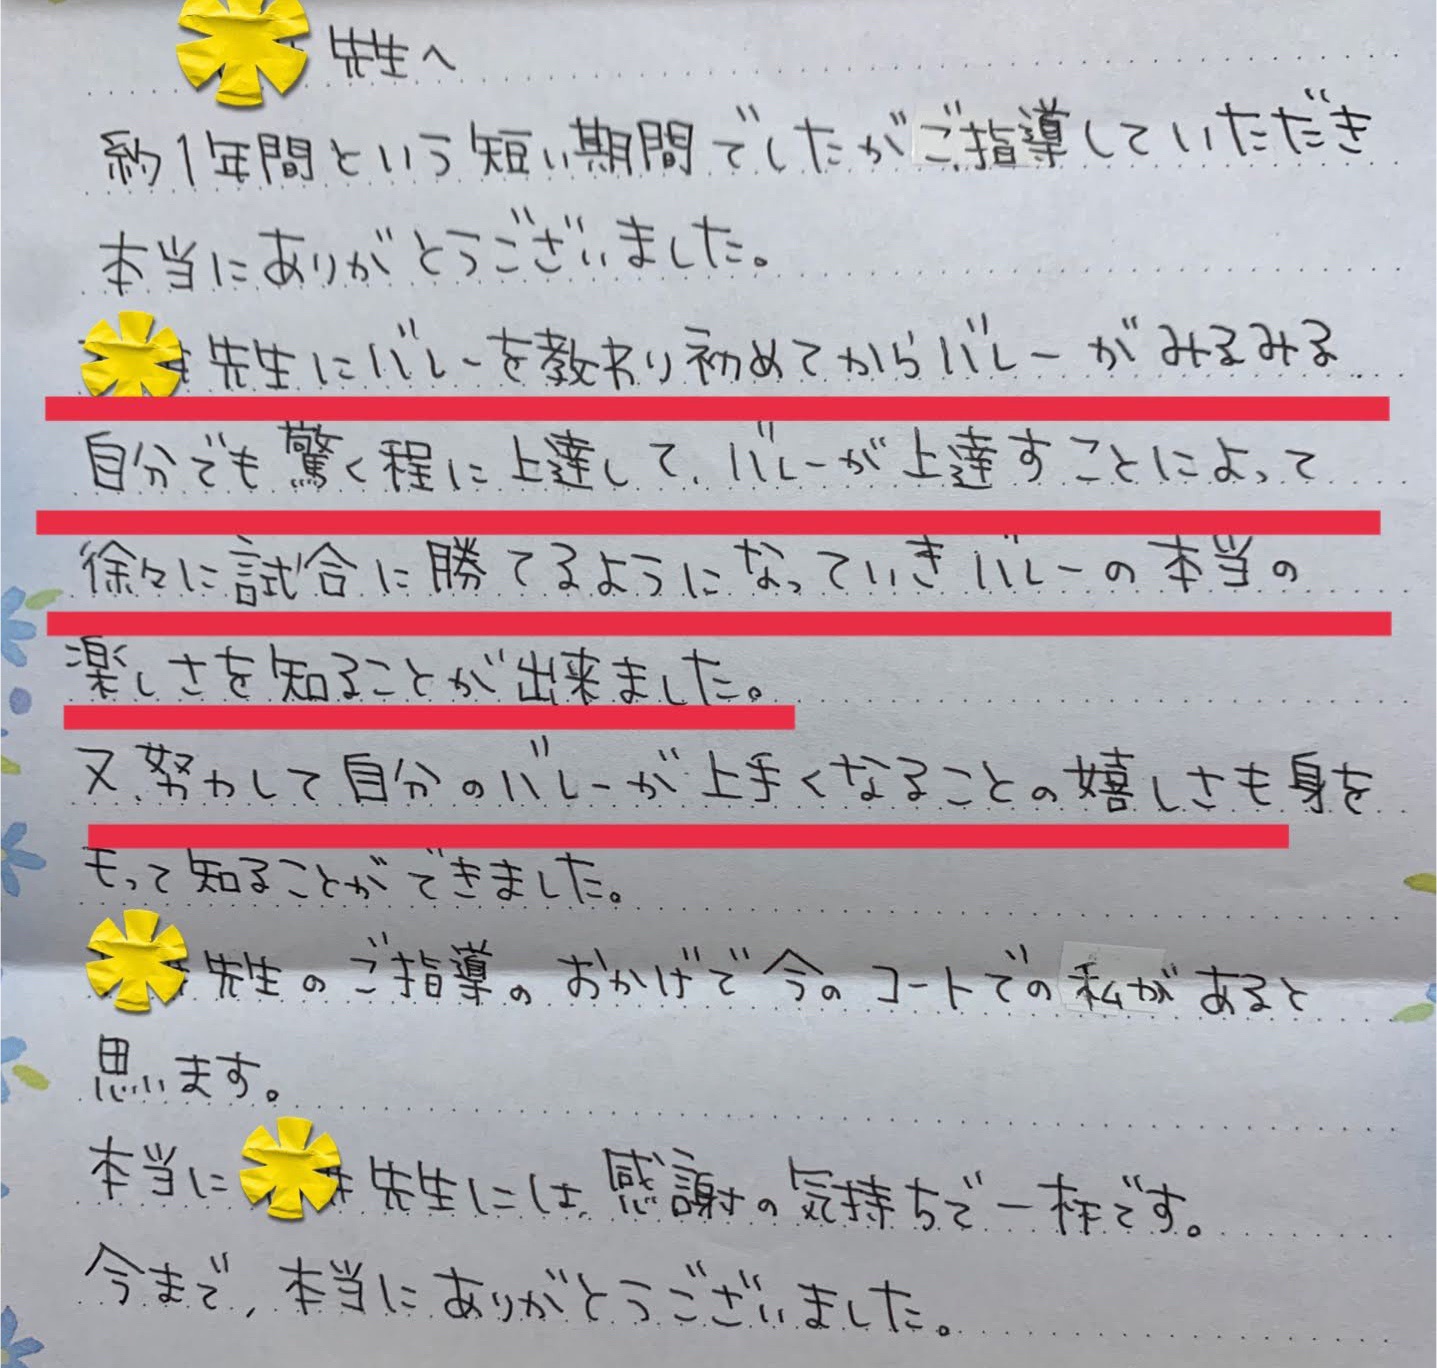 先生へ
約1年間という短い期間でしたがご指導していただき
本当にありがとうございました。
先生にバレーを教わり初めてからバレーがみるみる
自分でも驚く程に上達して、バレーが上達すことによって
徐々に試合に勝てるようになっていきバレーの本当の
楽しさを知ることが出来ました。
又、努力して自分のバレーが上手くなることの嬉しさも身を
もって知ることができました。
先生のご指導のおかげで今のコートでの私があると
思います。
本当に先生には、感謝の気持ちで一杯です。
今まで、本当にありがとうございました。